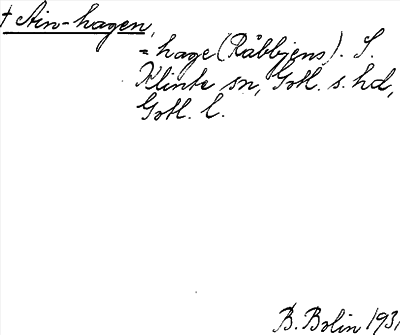 † Ain-hagen,
= hage (Räbbjens). S.
Klinte sn, Gotl. s. hd,
Gotl. l.
B. Bolin 193